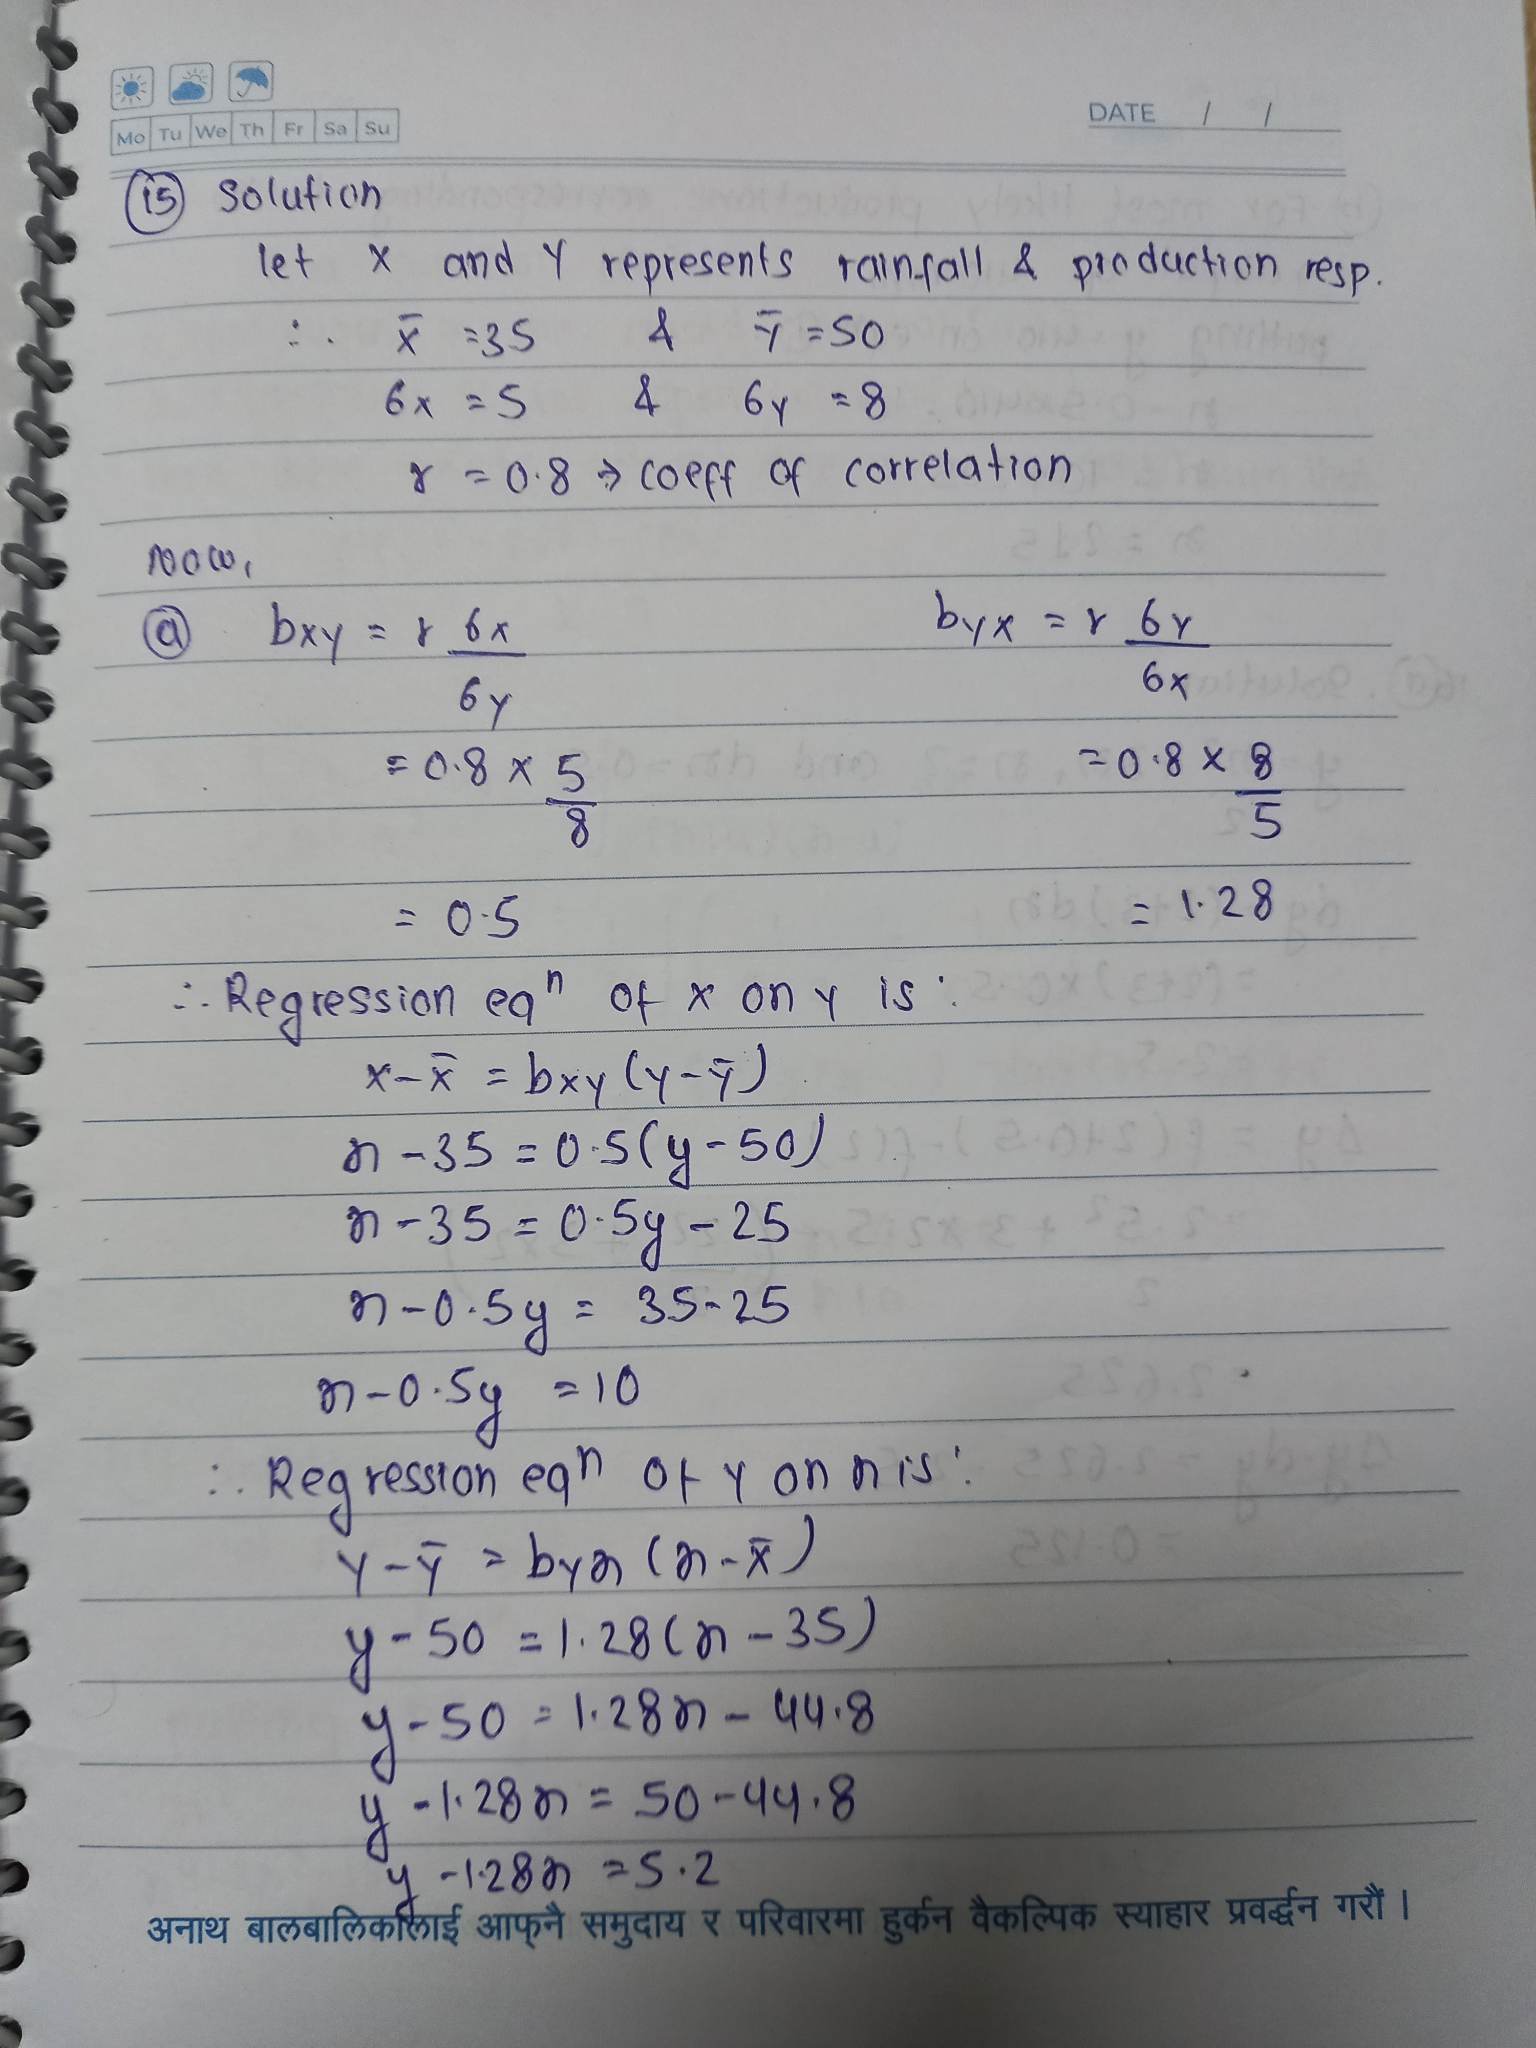 Mo Tu We Th Fr Sa Su
DATE / /
(15) Solution
let x and Y represents rainfall & production resp.
∴ x̄ = 35 & ȳ = 50
6x = 5 & 6y = 8
r = 0.8 → coeff of correlation
Now,
(a) bxy = r 6x/6y byx = r 6y/6x
= 0.8 × 5/8 = 0.8 × 8/5
= 0.5 = 1.28
∴ Regression eqⁿ of x on y is:
x - x̄ = bxy (y - ȳ)
x - 35 = 0.5(y - 50)
x - 35 = 0.5y - 25
x - 0.5y = 35-25
x - 0.5y = 10
∴ Regression eqⁿ of y on x is:
y - ȳ = byx (x - x̄)
y - 50 = 1.28(x - 35)
y - 50 = 1.28x - 44.8
y - 1.28x = 50 - 44.8
y - 1.28x = 5.2
अनाथ बालबालिकालाई आफ्नै समुदाय र परिवारमा हुर्कन वैकल्पिक स्याहार प्रवर्द्धन गरौं ।